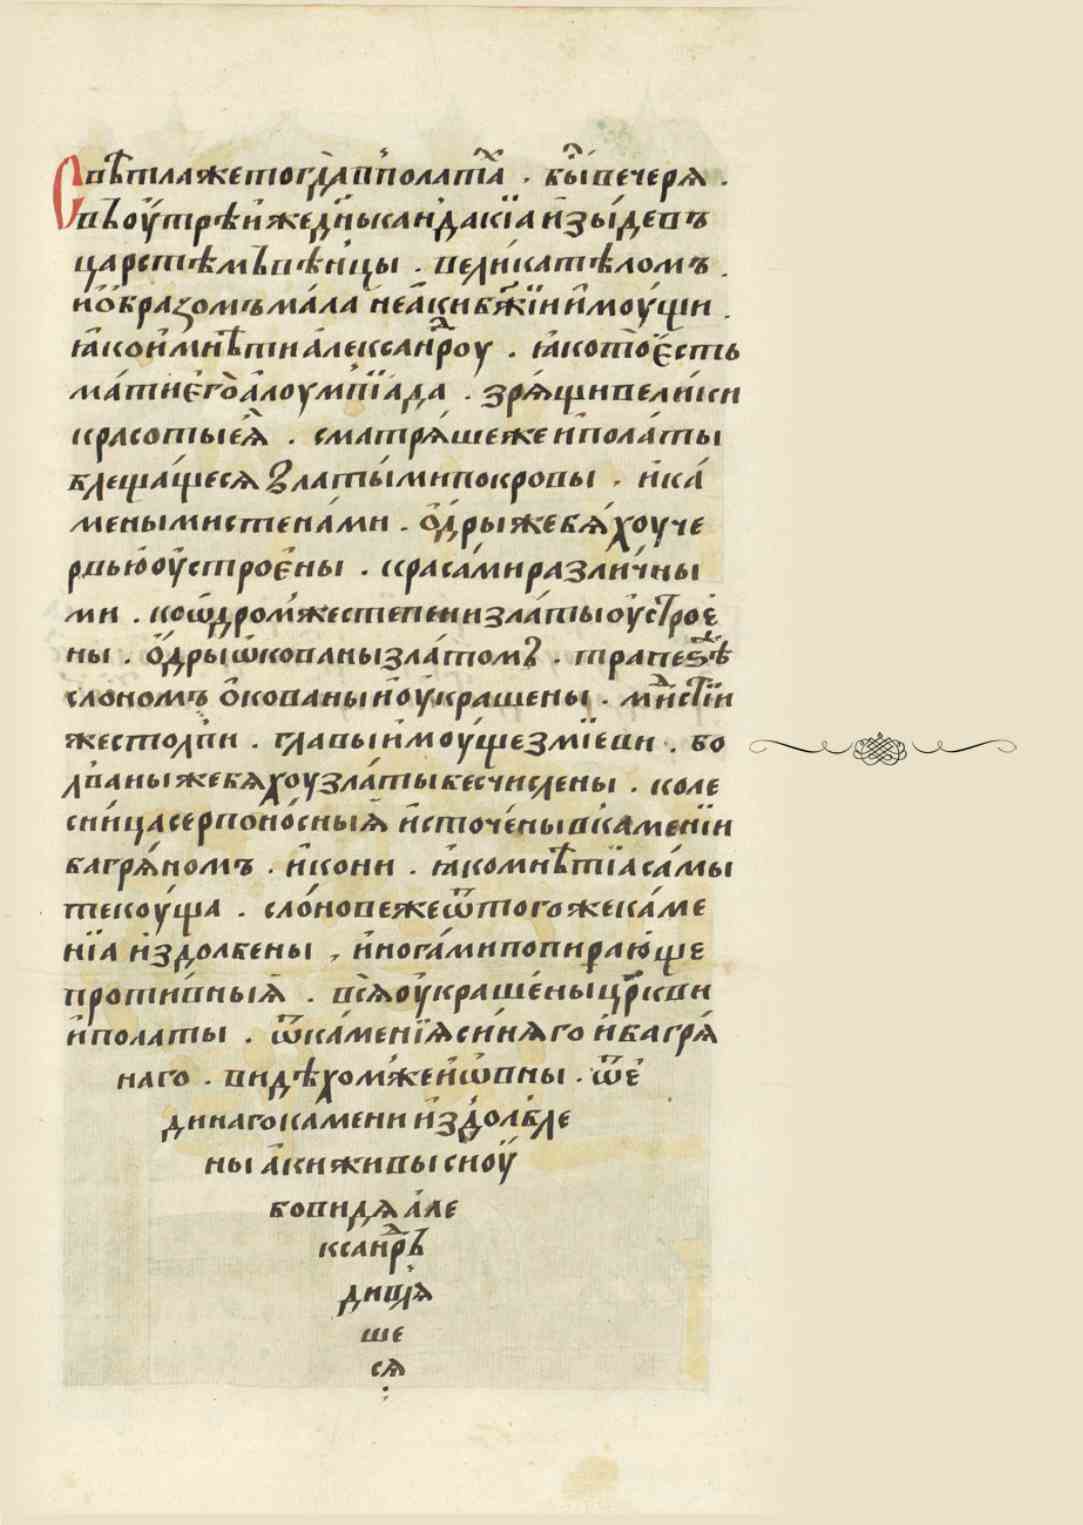 Свѣтла же тогда в полатаⷯ . быⷭ вечеря .
въоутрѣиже дн҃ь кандакїа изыде въ
царстѣмъ вѣнцы . велика тѣломъ .
и образомъ мала не аки бж҃їи имоущи .
ꙗко имнѣти александⷬоу . ꙗко то есть
мати его алоумпїада . зрящи велики
красоты еꙗ . сматряше же и полаты
блещащеся златыми покровы . и ка
меными стенами . одры же бяхоу че
рвью оустроены . красами различны
ми . ко ѡдром же степени златы оустрое
ны . одры ѡкованы златомъ . трапеѕⷤѣ
слономъ окованы и оукрашены . мⷣнстїи
же столпи . главы имоуще змїеви . бо
лваны же бяхоу златы бесчислены . коле
сница серпоносныѧ источены в каменїи
багряномъ . и кони . ꙗко мнѣтїа самы
текоуща . слонове же ѿ того же каме
нїа издолбены , и ногами попирающе
противныѧ . вся оукрашены цр҃кви
и полаты . ѿ каменїя синяго и багря
наго . видѣхом же и ѡвны . ѿ е
динаго камени издолбле
ны аки живы сноу
бо видя але
ксанⷣръ
дивꙗ
ше
ся
: